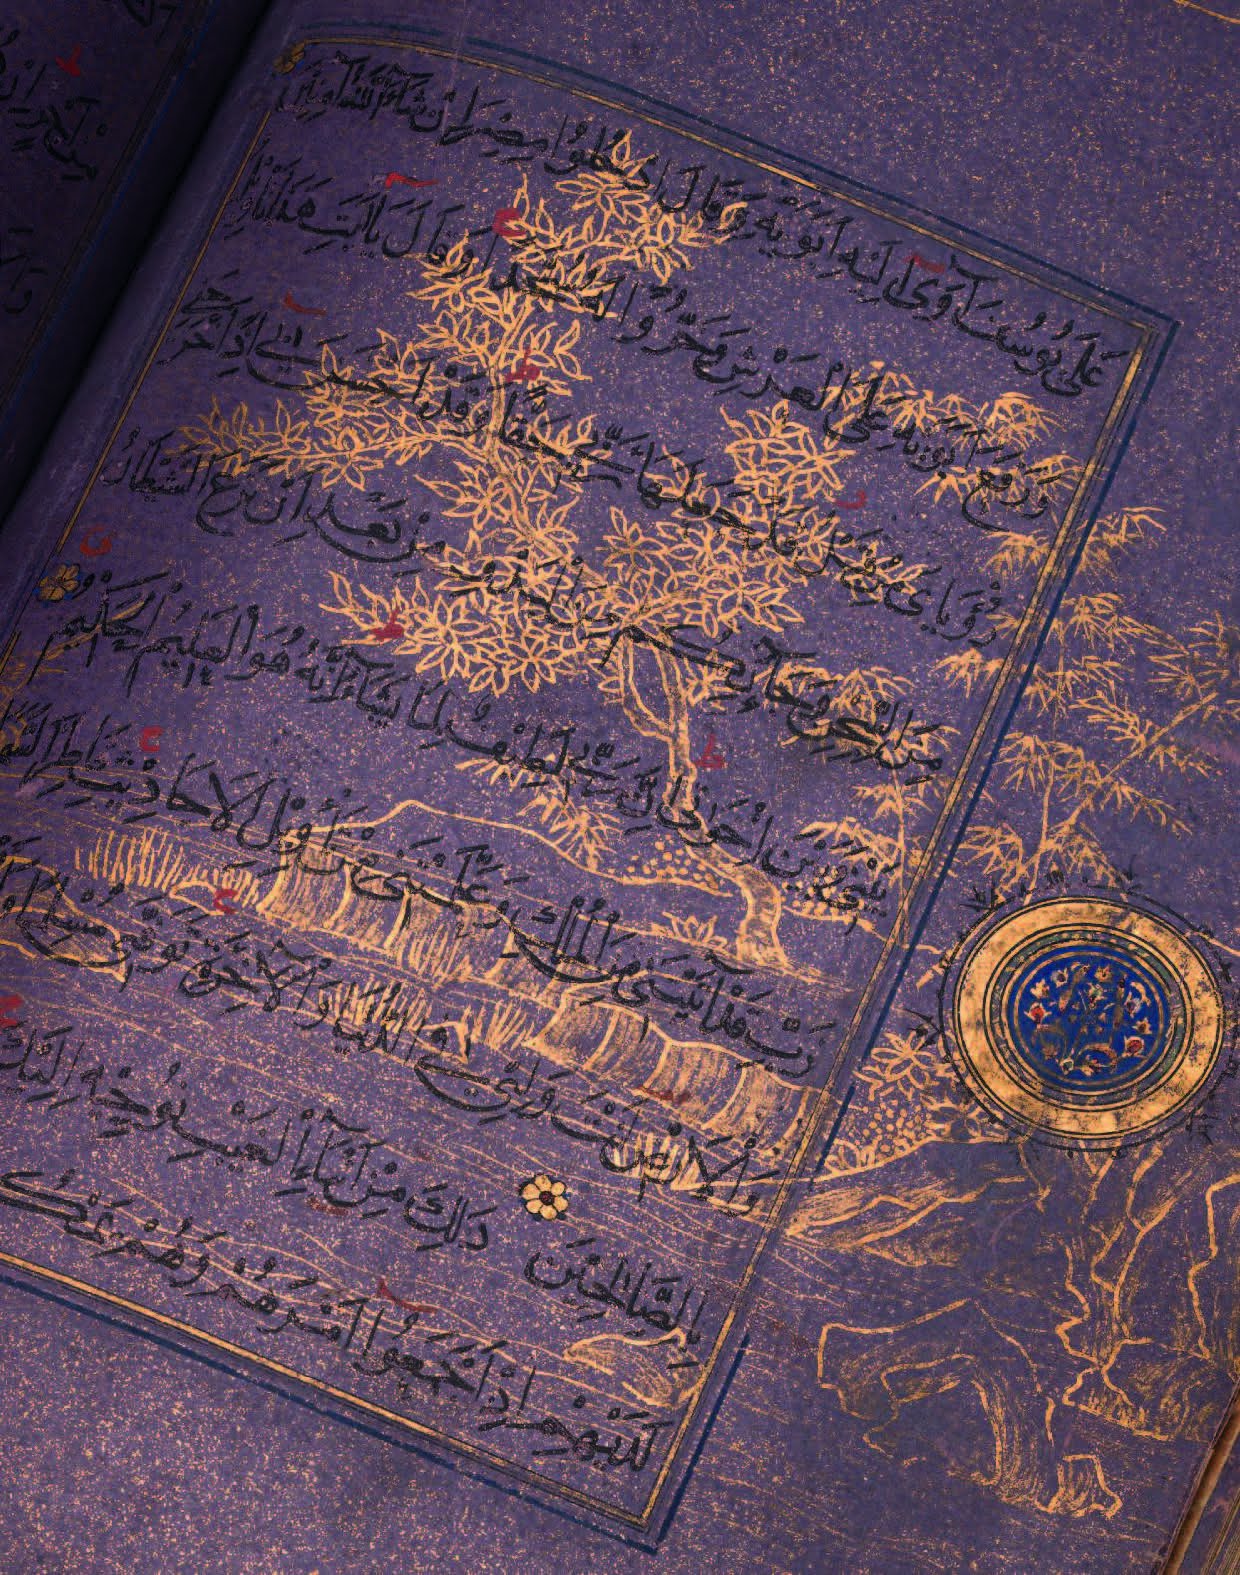 عَلَىٰ يُوسُفَ آوَىٰ إِلَيْهِ أَبَوَيْهِ وَقَالَ ادْخُلُوا مِصْرَ إِنْ شَاءَ اللَّهُ آمِنِينَ
وَرَفَعَ أَبَوَيْهِ عَلَى الْعَرْشِ وَخَرُّوا لَهُ سُجَّدًا وَقَالَ يَا أَبَتِ هَٰذَا تَأْوِيلُ
رُؤْيَايَ مِنْ قَبْلُ قَدْ جَعَلَهَا رَبِّي حَقًّا وَقَدْ أَحْسَنَ بِي إِذْ أَخْرَجَنِي
مِنَ السِّجْنِ وَجَاءَ بِكُمْ مِنَ الْبَدْوِ مِنْ بَعْدِ أَنْ نَزَغَ الشَّيْطَانُ
بَيْنِي وَبَيْنَ إِخْوَتِي إِنَّ رَبِّي لَطِيفٌ لِمَا يَشَاءُ إِنَّهُ هُوَ الْعَلِيمُ الْحَكِيمُ
رَبِّ قَدْ آتَيْتَنِي مِنَ الْمُلْكِ وَعَلَّمْتَنِي مِنْ تَأْوِيلِ الْأَحَادِيثِ فَاطِرَ
وَالْأَرْضِ أَنْتَ وَلِيِّي فِي الدُّنْيَا وَالْآخِرَةِ تَوَفَّنِي مُسْلِمًا
بِالصَّالِحِينَ ذَٰلِكَ مِنْ أَنْبَاءِ الْغَيْبِ نُوحِيهِ إِلَيْكَ
لَدَيْهِمْ إِذْ أَجْمَعُوا أَمْرَهُمْ وَهُمْ يَمْكُرُونَ